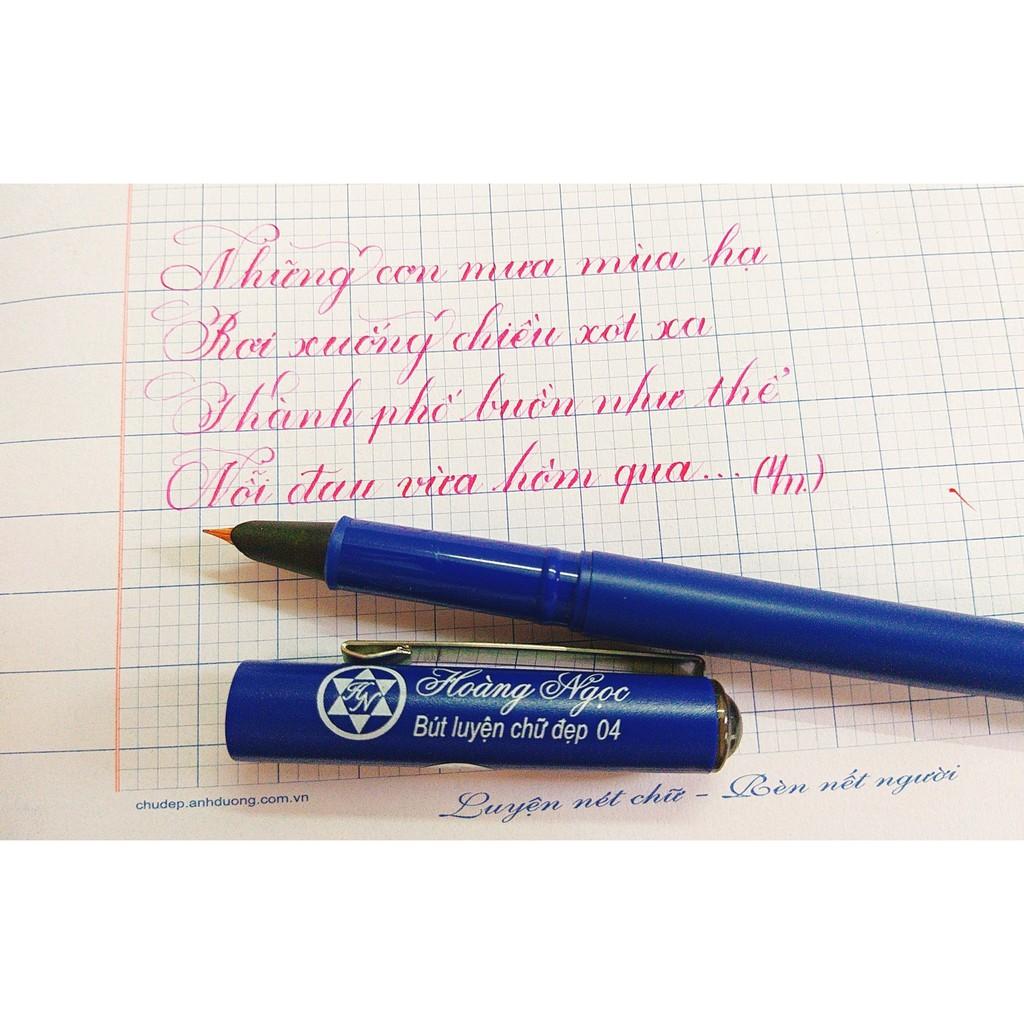 Những cơn mưa mùa hạ
Rơi xuống chiều xót xa
Thành phố buồn như thể
Nỗi đau vừa hôm qua...
HN
Hoàng Ngọc
Bút luyện chữ đẹp 04
chudep.anhduong.com.vn
Luyện nét chữ - Rèn nết người